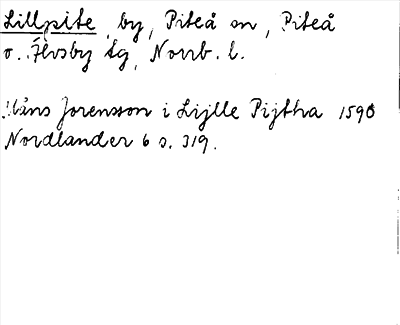 Lillpite, by, Piteå sn, Piteå
o. Älvsby tg, Norrb. l.
Måns Jorensson i Lijlle Pijtha 1590
Nordlander 6 s. 319.